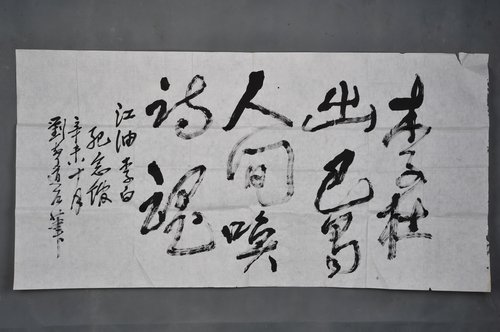 李杜
出巴蜀
人间唤
诗魂
江油李白
纪念馆
辛未十月
劉